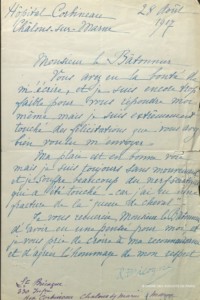 Hôpital Corbineau
Châlons-sur-Marne
28 Août
1917
Monsieur le Bâtonnier
Vous avez eu la bonté de
m'écrire, et je suis encore
faible pour vous répondre moi
même mais je suis extrêmement
touché des félicitations que vous avez
bien voulu m'envoyer.
Ma plaie est en bonne voie
mais je suis toujours sans mouvement
et souffre beaucoup du nerf
qui a été touché car j'ai eu une
fraction de la "queue de cheval"
Je vous remercie, Monsieur le Bâtonnier
d'avoir eu une pensée pour moi et
je vous prie de croire à ma reconnaissance
et d'agréer l'hommage de mon respect
Lt
Rue Corbineau Châlons s/ Marne